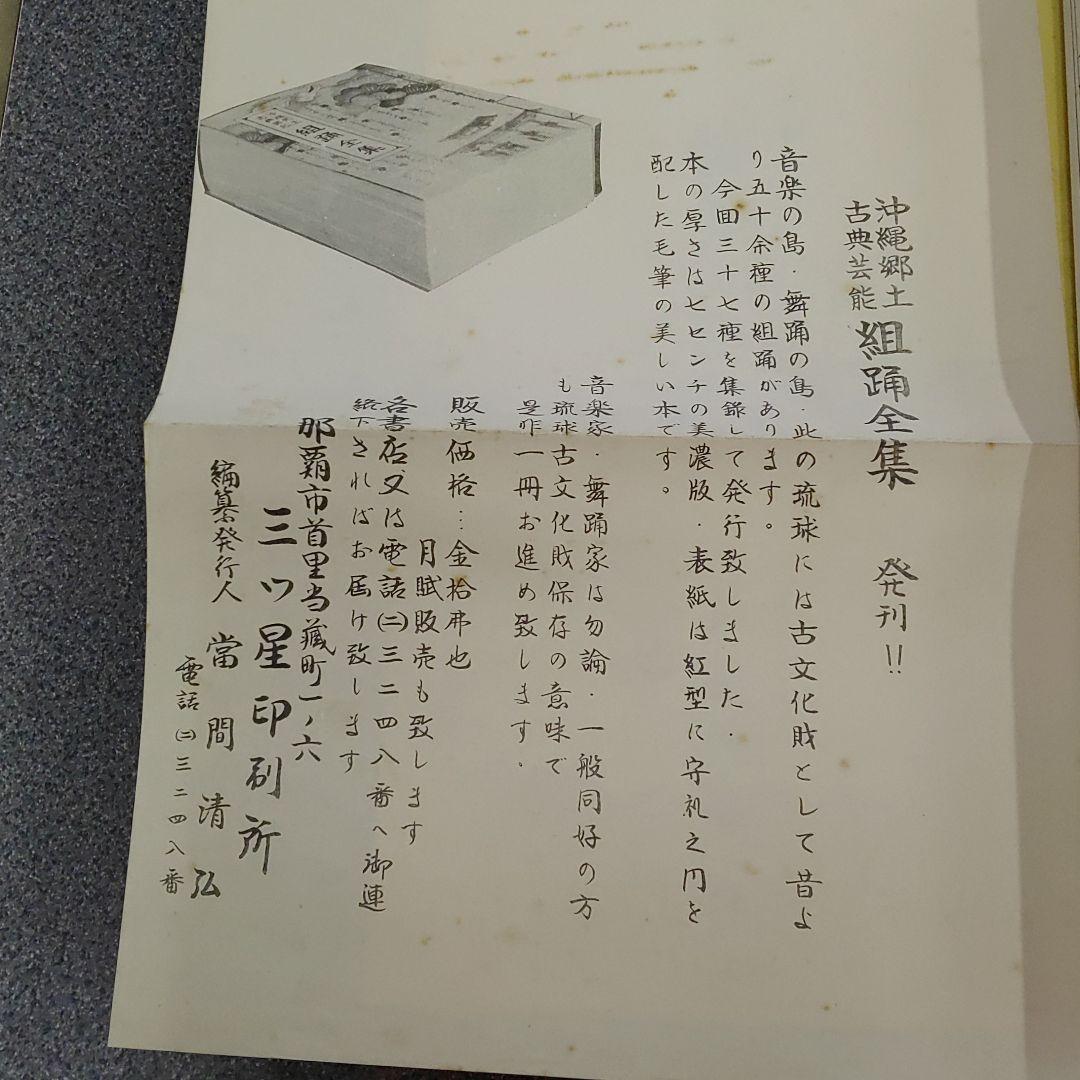 沖縄郷土
古典芸能
組踊全集 発刊!!
音楽の島・舞踊の島・此の琉球には古文化財として昔よ
り五十余種の組踊があります。
今回三十七種を集録して発行致しました・
本の厚さは七センチの美濃版・表紙は紅型に守礼之門を
配した毛筆の美しい本です。
音楽家・舞踊家は勿論・一般同好の方
も琉球古文化財保存の意味で
是非一冊お進め致します・
販売価格…金拾弗也
月賦販売も致します
各書店又は電話(二)三二四八番へ御連
絡下さればお届け致します
那覇市首里当蔵町一ノ六
三ツ星印刷所
編纂発行人 當間清弘
電話(二)三二四八番
組踊全集